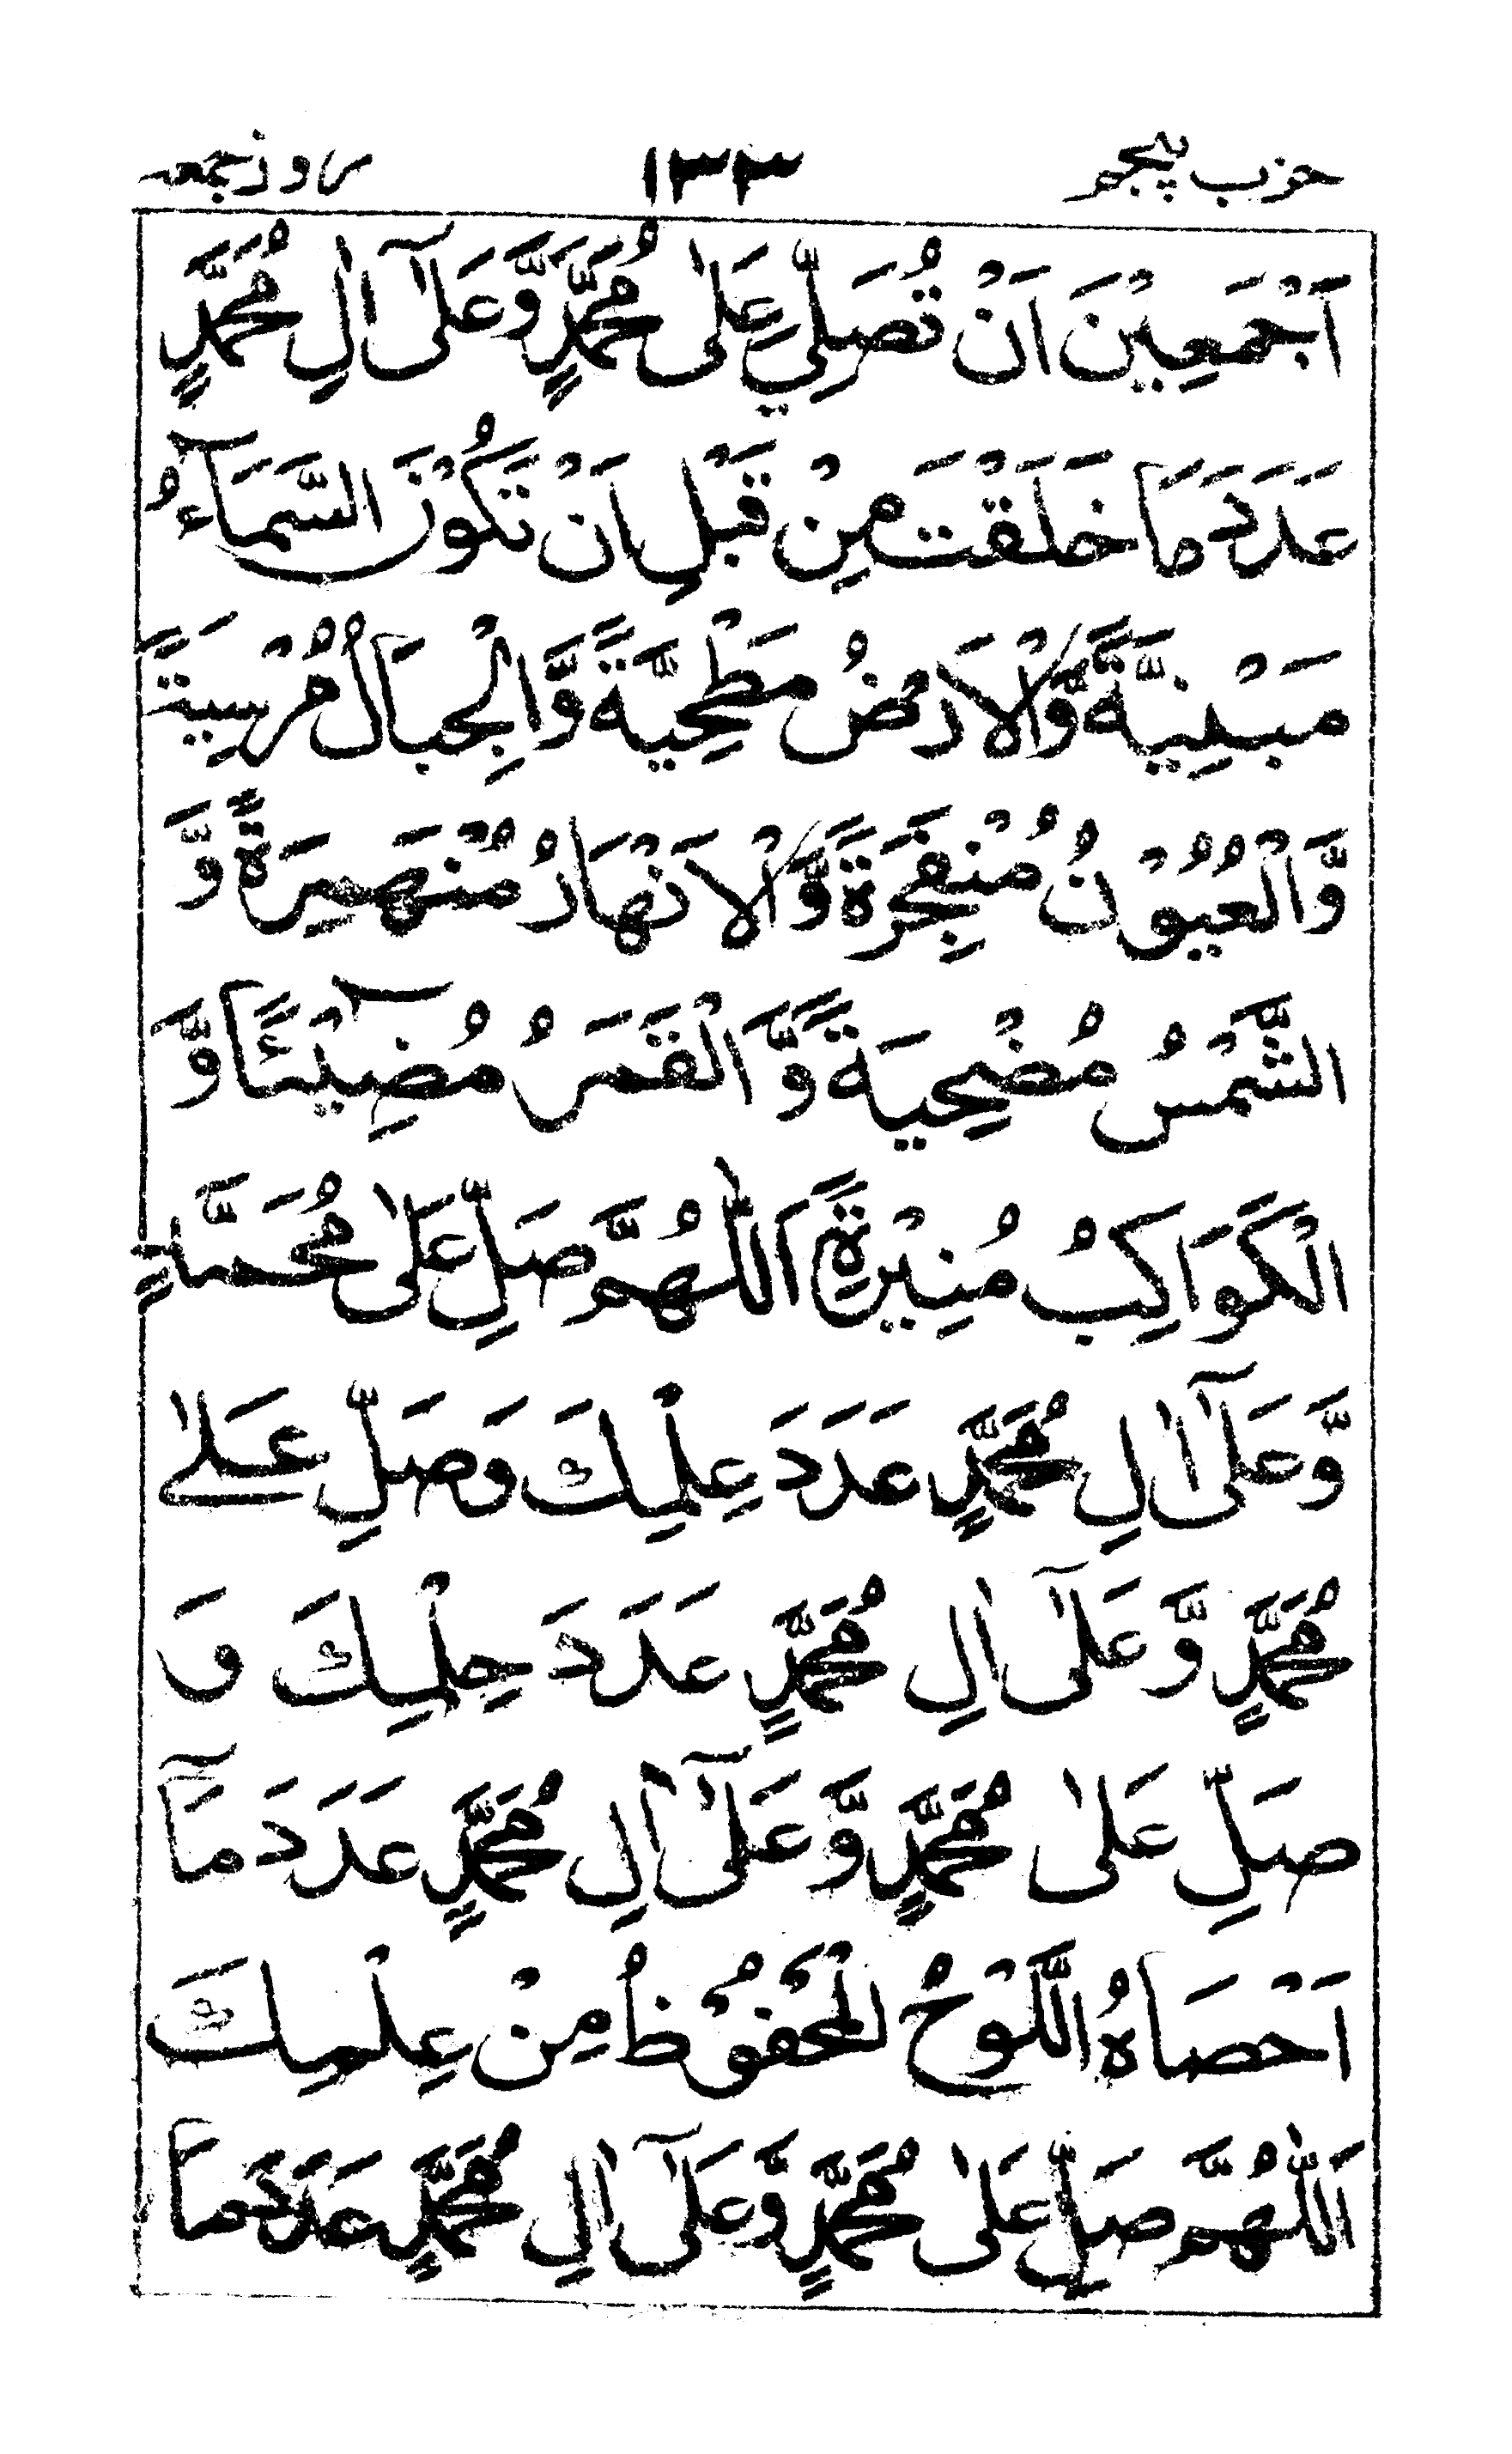 حزب پنجم ۱۳۳ روز جمعہ
اَجْمَعِيْنَ اَنْ تُصَلِّيَ عَلٰى مُحَمَّدٍ وَّعَلٰٓى اٰلِ مُحَمَّدٍ
عَدَدَ مَا خَلَقْتَ مِنْ قَبْلِ اَنْ تَكُوْنَ السَّمَآءُ
مَبْنِيَّةً وَّالْاَرْضُ مَطْحِيَّةً وَّالْجِبَالُ مُرْسِيَةً
وَّالْعُيُوْنُ مُنْفَجِرَةً وَّالْاَنْهَارُ مُنْهَمِرَةً وَّ
الشَّمْسُ مُضْحِيَةً وَّالْقَمَرُ مُضِيْٓئًا وَّ
الْكَوَاكِبُ مُنِيْرَةً اَللّٰهُمَّ صَلِّ عَلٰى مُحَمَّدٍ
وَّعَلٰٓى اٰلِ مُحَمَّدٍ عَدَدَ عِلْمِكَ وَصَلِّ عَلٰى
مُحَمَّدٍ وَّعَلٰٓى اٰلِ مُحَمَّدٍ عَدَدَ حِلْمِكَ وَ
صَلِّ عَلٰى مُحَمَّدٍ وَّعَلٰٓى اٰلِ مُحَمَّدٍ عَدَدَ مَآ
اَحْصَاهُ اللَّوْحُ الْمَحْفُوْظُ مِنْ عِلْمِكَ
اَللّٰهُمَّ صَلِّ عَلٰى مُحَمَّدٍ وَّعَلٰٓى اٰلِ مُحَمَّدٍ عَدَدَ مَا